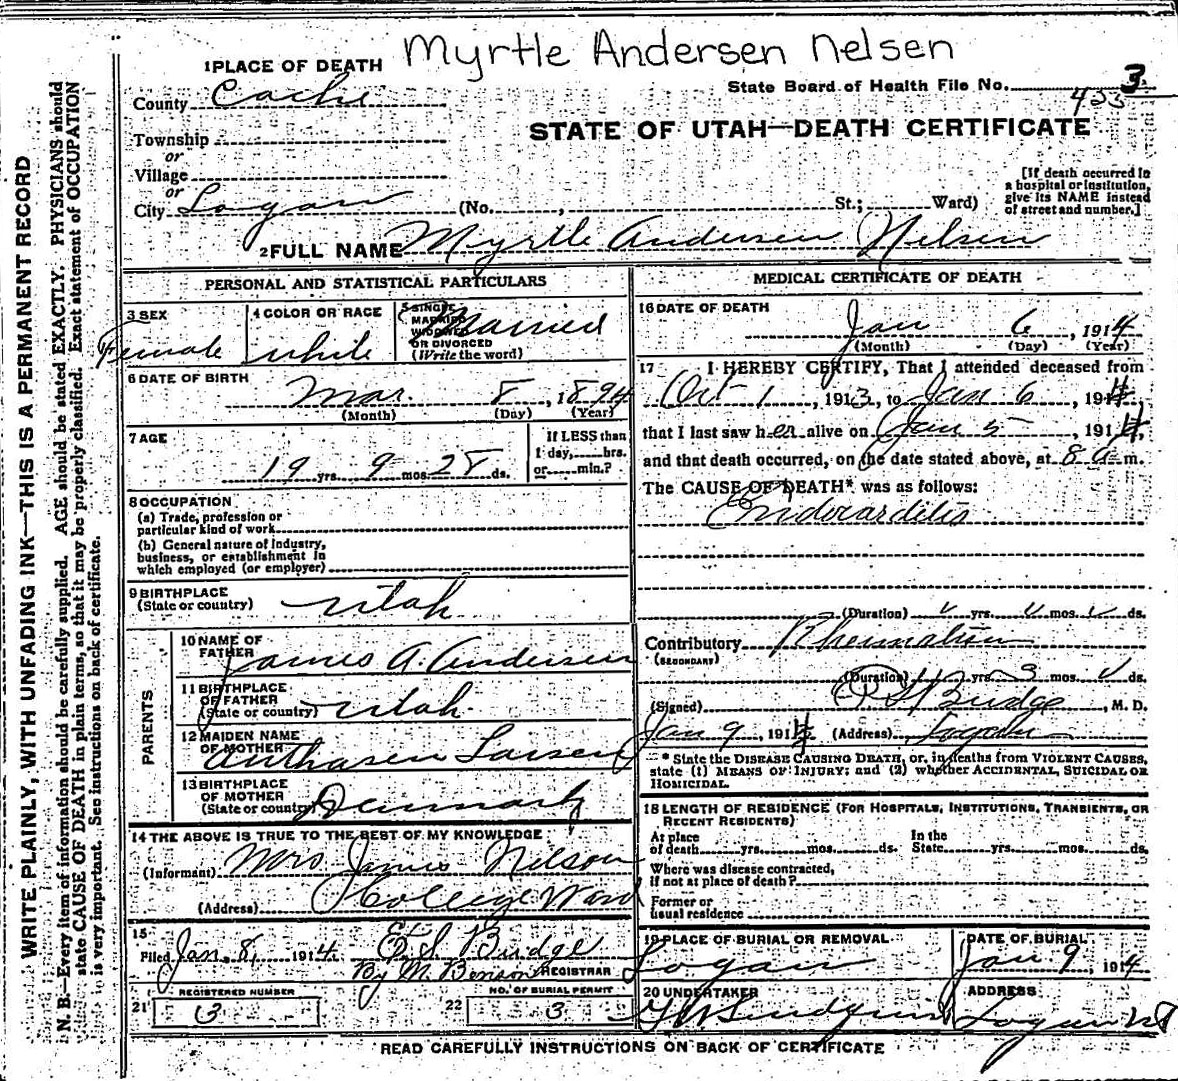 Myrtle Andersen Nelsen
1 PLACE OF DEATH
State Board of Health File No. 3
County Cache
Township
or
Village
or
City Logan (No. , St.; Ward)
STATE OF UTAH—DEATH CERTIFICATE
[If death occurred in
a hospital or institution,
give its NAME instead
of street and number.]
2 FULL NAME Myrtle Andersen Nelsen
PERSONAL AND STATISTICAL PARTICULARS
3 SEX
Female
4 COLOR OR RACE
white
5 SINGLE
MARRIED
WIDOWED
OR DIVORCED
(Write the word)
Married
6 DATE OF BIRTH
Mar. 8, 1894
(Month) (Day) (Year)
7 AGE
19 yrs. 9 mos. 28 ds.
If LESS than
1 day, hrs.
or min.?
8 OCCUPATION
(a) Trade, profession or
particular kind of work
(b) General nature of industry,
business, or establishment in
which employed (or employer)
9 BIRTHPLACE
(State or country) Utah
PARENTS
10 NAME OF
FATHER James A. Andersen
11 BIRTHPLACE
OF FATHER
(State or country) Utah
12 MAIDEN NAME
OF MOTHER Larsen
13 BIRTHPLACE
OF MOTHER
(State or country) Denmark
14 THE ABOVE IS TRUE TO THE BEST OF MY KNOWLEDGE
(Informant) Mrs James Nelson
(Address) College Ward
15
Filed Jan. 8, 1914. E. S. Budge
By M. Benson REGISTRAR
REGISTERED NUMBER
21 3
NO. OF BURIAL PERMIT
22 3
MEDICAL CERTIFICATE OF DEATH
16 DATE OF DEATH
Jan 6, 1914
(Month) (Day) (Year)
17 I HEREBY CERTIFY, That I attended deceased from
Oct 1, 1913, to Jan 6, 1914,
that I last saw her alive on Jan 5, 1914,
and that death occurred, on the date stated above, at 8 a m.
The CAUSE OF DEATH* was as follows:
Endocarditis
(Duration) yrs. mos. ds.
Contributory Rheumatism
(SECONDARY)
(Duration) yrs. 3 mos. ds.
(Signed) Budge, M. D.
Jan 9, 1914 (Address) Logan
* State the DISEASE CAUSING DEATH, or, in deaths from VIOLENT CAUSES,
state (1) MEANS OF INJURY; and (2) whether ACCIDENTAL, SUICIDAL OR
HOMICIDAL.
18 LENGTH OF RESIDENCE (FOR HOSPITALS, INSTITUTIONS, TRANSIENTS, OR
RECENT RESIDENTS)
At place
of death yrs. mos. ds.
In the
State yrs. mos. ds.
Where was disease contracted,
if not at place of death?
Former or
usual residence
19 PLACE OF BURIAL OR REMOVAL
Logan
DATE OF BURIAL
Jan 9, 1914
20 UNDERTAKER
ADDRESS
Logan Ut
READ CAREFULLY INSTRUCTIONS ON BACK OF CERTIFICATE
WRITE PLAINLY, WITH UNFADING INK—THIS IS A PERMANENT RECORD
N. B.—Every item of information should be carefully supplied. AGE should be stated EXACTLY. PHYSICIANS should
state CAUSE OF DEATH in plain terms, so that it may be properly classified. Exact statement of OCCUPATION
is very important. See instructions on back of certificate.